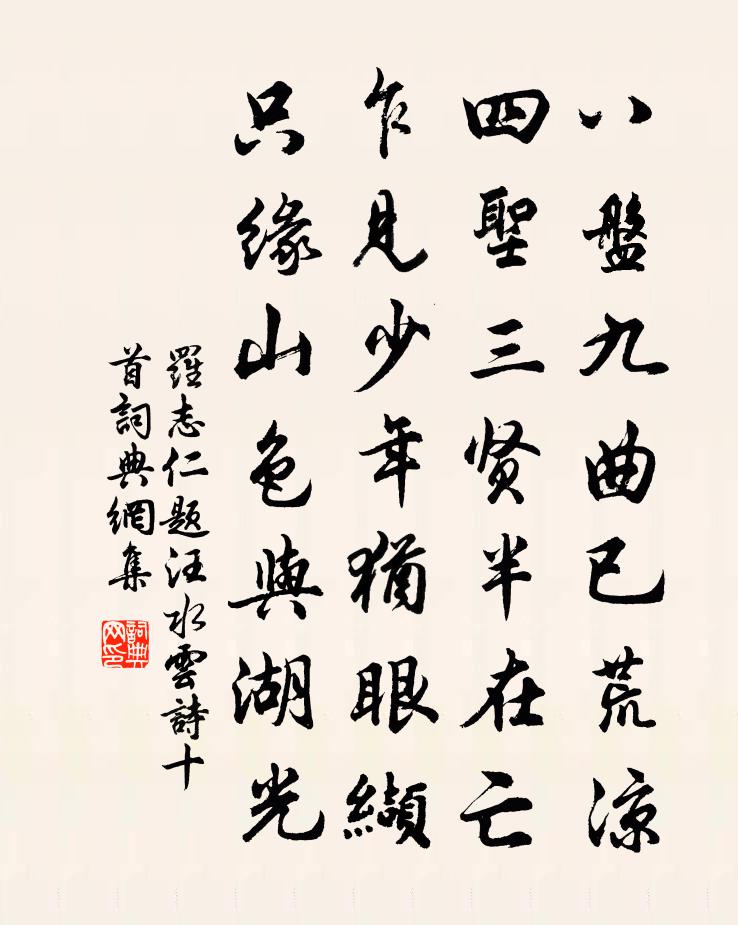 八盤九曲已荒涼
四聖三贤半在亡
乍見少年猶眼纈
只緣山色與湖光
羅志仁題汪水雲詩十
首詞典網集
詞典
网印